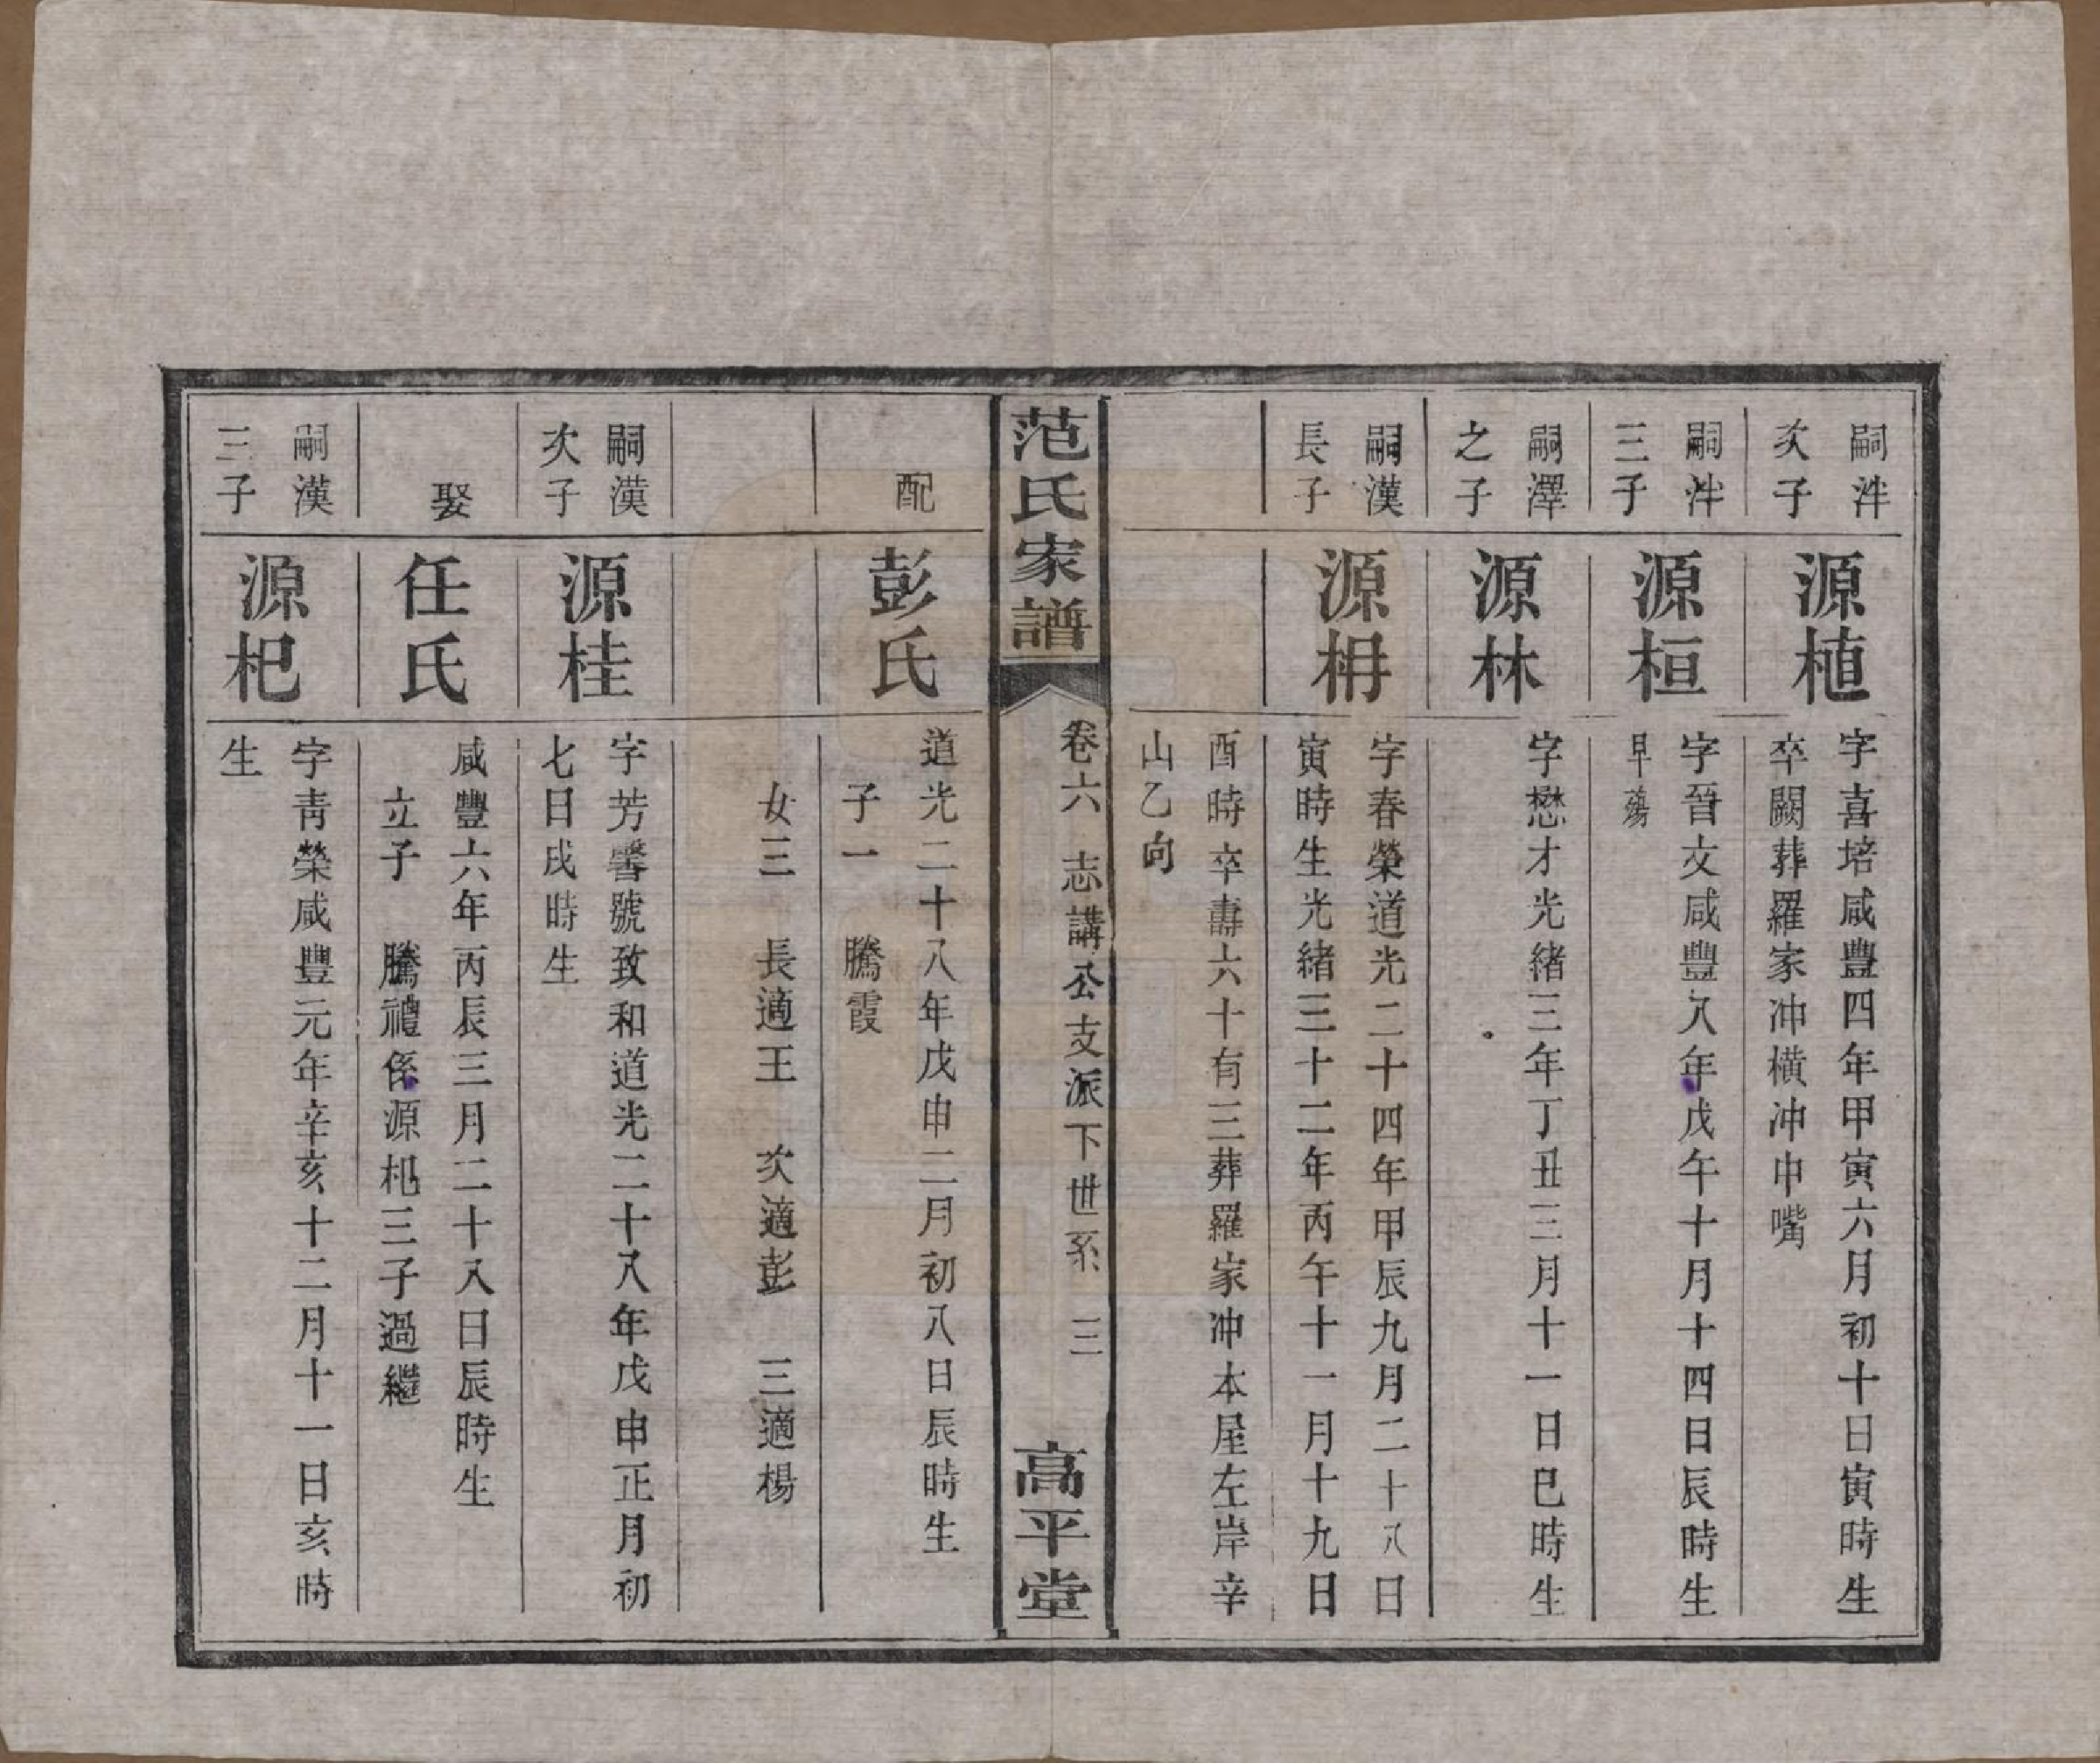 嗣泮
次子
源植
字喜培咸豐四年甲寅六月初十日寅時生
卒闕葬羅家冲橫冲申嘴
嗣泮
三子
源桓
字晉文咸豐八年戊午十月十四日辰時生
早殤
嗣澤
之子
源林
字懋才光緒三年丁丑三月十一日巳時生
嗣漢
長子
源枏
字春榮道光二十四年甲辰九月二十八日
寅時生光緒三十二年丙午十一月十九日
酉時卒壽六十有三葬羅家冲本屋左岸辛
山乙向
范氏家譜
卷六 志講公支派下世系 三
高平堂
配
彭氏
道光二十八年戊申二月初八日辰時生
子一 騰霞
女三 長適王 次適彭 三適楊
嗣漢
次子
源桂
字芳馨號致和道光二十八年戊申正月初
七日戌時生
娶
任氏
咸豐六年丙辰三月二十八日辰時生
立子 騰禮係源杞三子過繼
嗣漢
三子
源杞
字靑榮咸豐元年辛亥十二月十一日亥時
生